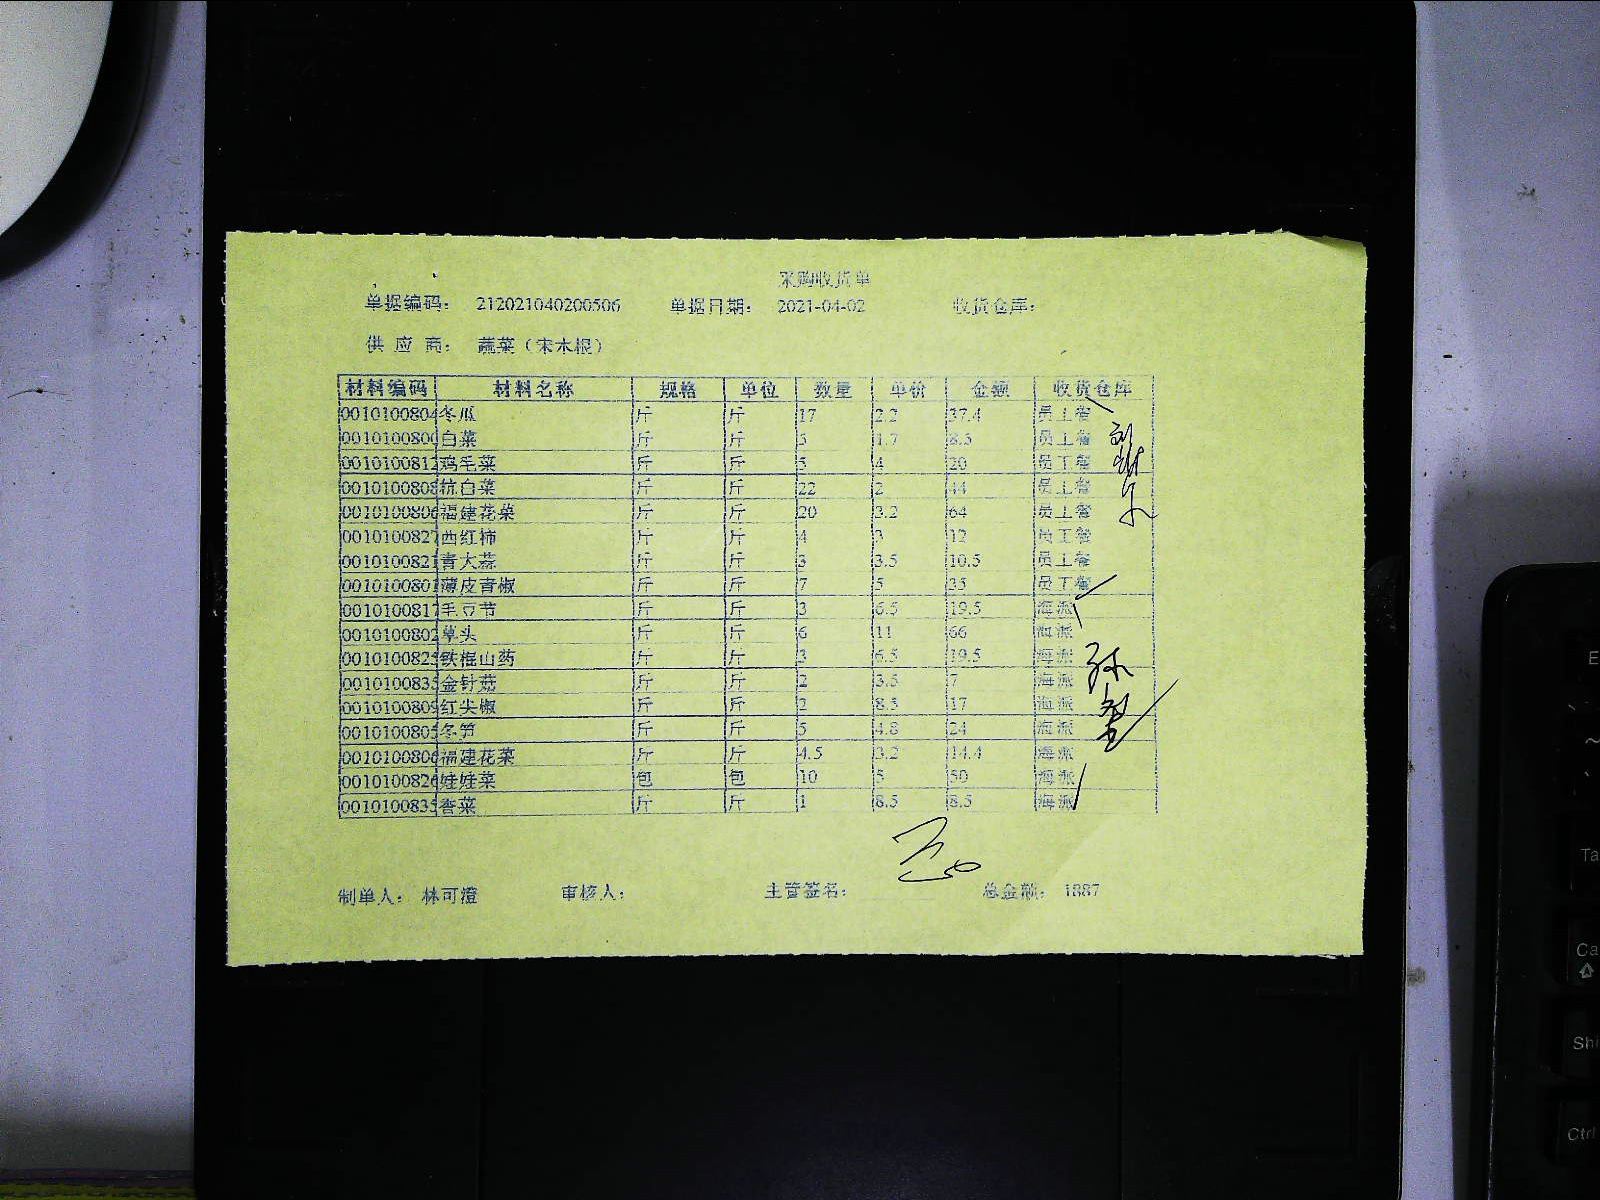 采购收货单
单据编码： 212021040200506 单据日期： 2021-04-02 收货仓库：
供 应 商： 蔬菜（宋木根）
材料编码 材料名称 规格 单位 数量 单价 金额 收货仓库
0010100804 冬瓜 斤 斤 17 2.2 37.4 员工餐
0010100800 白菜 斤 斤 5 1.7 8.5 员工餐
0010100812 鸡毛菜 斤 斤 5 4 20 员工餐
0010100808 杭白菜 斤 斤 22 2 44 员工餐
0010100806 福建花菜 斤 斤 20 3.2 64 员工餐
0010100827 西红柿 斤 斤 4 3 12 员工餐
0010100821 青大蒜 斤 斤 3 3.5 10.5 员工餐
0010100801 薄皮青椒 斤 斤 7 5 35 员工餐
0010100817 毛豆节 斤 斤 3 6.5 19.5 海派
0010100802 草头 斤 斤 6 11 66 海派
0010100825 铁棍山药 斤 斤 3 6.5 19.5 海派
0010100835 金针菇 斤 斤 2 3.5 7 海派
0010100809 红尖椒 斤 斤 2 8.5 17 海派
0010100805 冬笋 斤 斤 5 4.8 24 海派
0010100806 福建花菜 斤 斤 4.5 3.2 14.4 海派
0010100826 娃娃菜 包 包 10 5 50 海派
0010100835 香菜 斤 斤 1 8.5 8.5 海派
制单人： 林可澄 审核人： 主管签名： 总金额： 1887
Ctrl